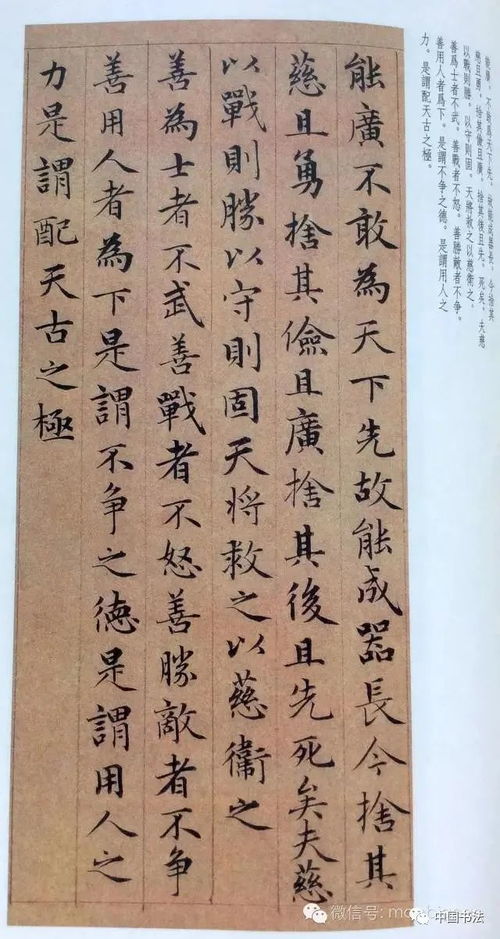 能廣。不敢爲天下先。故能成器長。今捨其
慈且勇。捨其儉且廣。捨其後且先。死矣。夫慈
以戰則勝。以守則固。天將救之以慈衛之。
善爲士者不武。善戰者不怒。善勝敵者不争。
善用人者爲下。是謂不争之德。是謂用人之
力。是謂配天古之極。
能廣不敢為天下先故能成器長今捨其
慈且勇捨其儉且廣捨其後且先死矣夫慈
以戰則勝以守則固天將救之以慈衛之
善為士者不武善戰者不怒善勝敵者不争
善用人者為下是謂不争之德是謂用人之
力是謂配天古之極
微信号:
中国书法